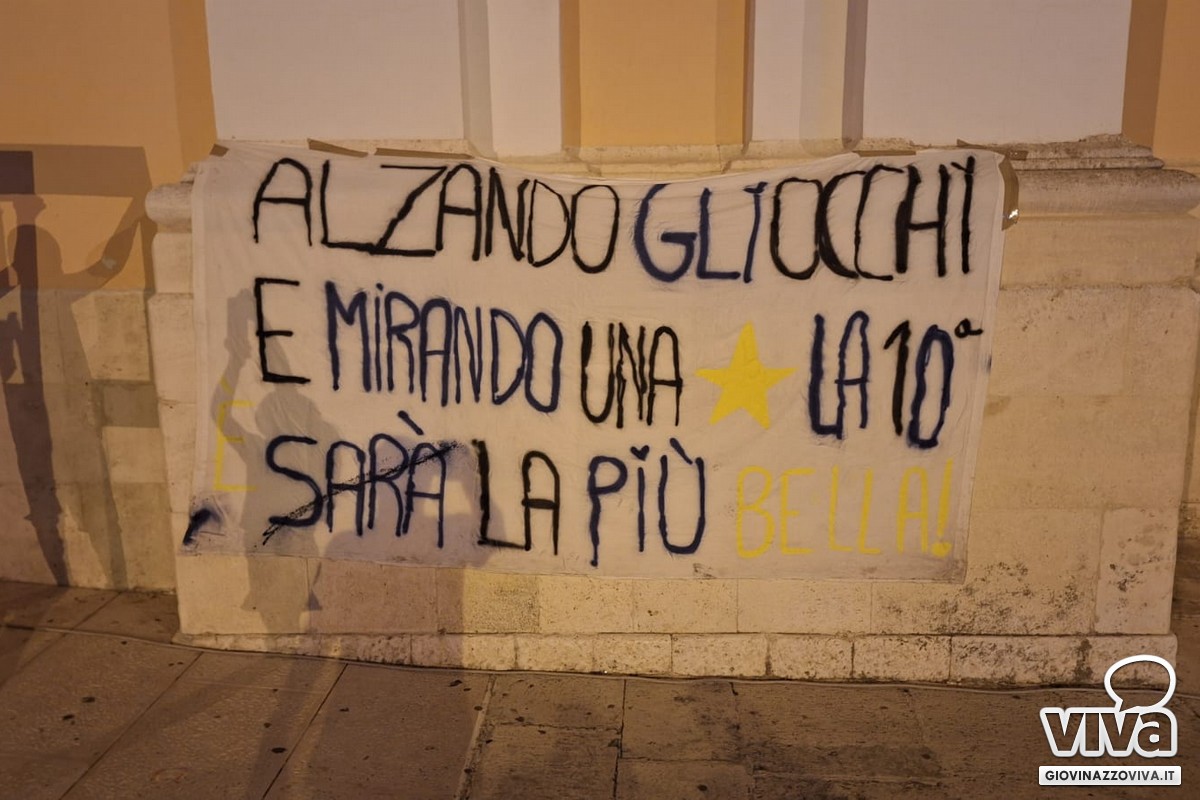 ALZANDO GLI OCCHI
E MIRANDO UNA LA 10ª
È SARÀ LA PIÙ BELLA!
VIVA
GIOVINAZZOVIVA.IT